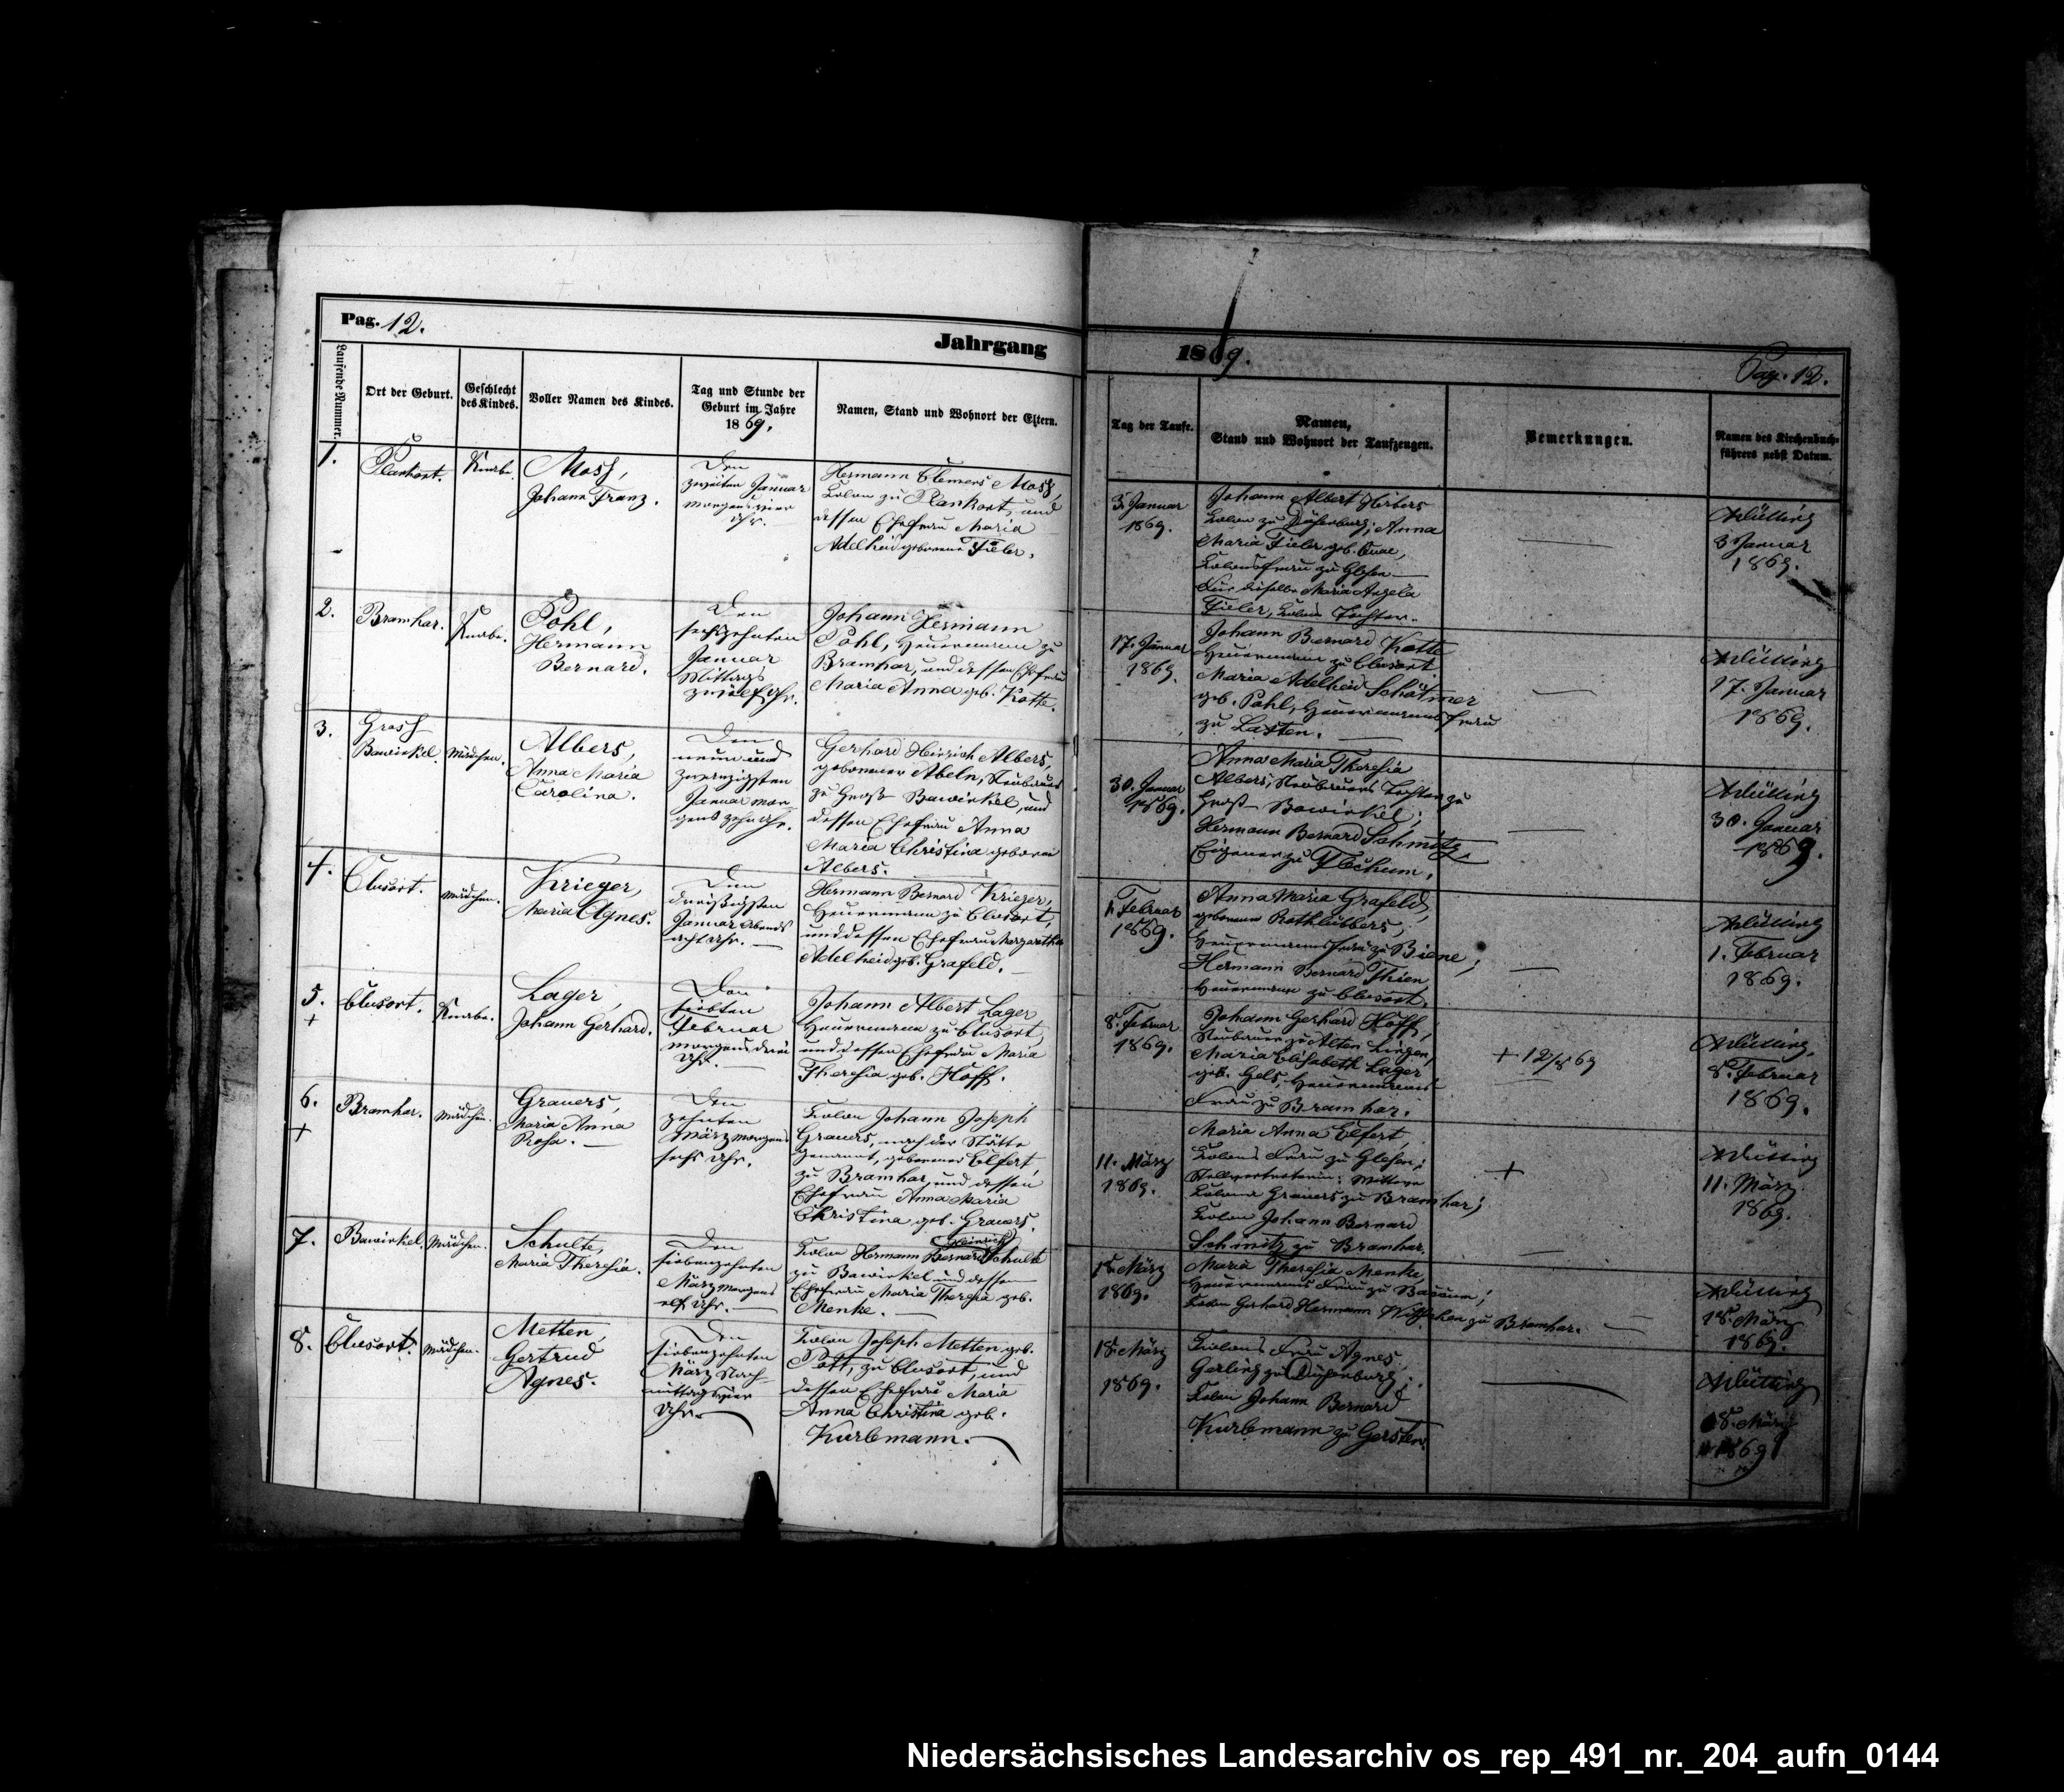 Pag. 12.
Jahrgang
1869.
Pag. 12.
Laufende Nummer.
Ort der Geburt.
Geschlecht
des Kindes.
Voller Namen des Kindes.
Tag und Stunde der
Geburt im Jahre
1869.
Namen, Stand und Wohnort der Eltern.
Tag der Taufe.
Namen,
Stand und Wohnort der Taufzeugen.
Bemerkungen.
Namen des Kirchenbuch-
führers nebst Datum.
1.
Plankort.
Knabe.
Moss,
Johann Franz.
Den
zweiten Januar
morgens vier
Uhr.
Hermann Clemens Moss,
Kolon zu Plankort, und
dessen Ehefrau Maria
Adelheid geborene Fieler.
3. Januar
1869.
Johann Albert Herbers
Kolon zu Duisenburg; Anna
Maria Fieler geb.
Kolonsfrau zu Glesen
Für dieselbe Maria Angela
Fieler, Kolons Tochter.
3. Januar
1869.
2.
Bramhar.
Knabe.
Pohl,
Hermann
Bernard.
Den
sechszehnten
Januar
Mittags
zwölf Uhr.
Johann Hermann
Pohl, Heuermann zu
Bramhar, und dessen Ehefrau
Maria Anna geb. Kotte.
17. Januar
1869.
Johann Bernard Kotte
Heuermann zu Clusort
Maria Adelheid
geb. Pohl, Heuermanns frau
zu Laxten.
17. Januar
1869.
3.
Gross
Bawinkel.
Mädchen.
Albers,
Anna Maria
Carolina.
Den
neun und
zwanzigsten
Januar mor-
gens zehn Uhr.
Gerhard Heinrich Albers,
geborener Abeln, Neubauer
zu Groß Bawinkel, und
dessen Ehefrau Anna
Maria Christina geborene
Albers.
30. Januar
1869.
Anna Maria Theresia
Albers, Neubauers Tochter zu
Groß Bawinkel;
Hermann Bernard Schmitz,
Eigener zu Flechum.
30. Januar
1869.
4.
Clusort.
Mädchen.
Krieger,
Maria Agnes.
Den
dreißigsten
Januar Abends
acht Uhr.
Hermann Bernard Krieger,
Heuermann zu Clusort,
und dessen Ehefrau Margaretha
Adelheid geb. Grafeld.
1. Februar
1869.
Anna Maria Grafeld,
geborene Rothlübbers,
Heuermanns frau zu Biene;
Hermann Bernard Thien
Heuermann zu Clusort.
1. Februar
1869.
5.
+
Clusort.
Knabe.
Lager,
Johann Gerhard.
Den
siebten
Februar
morgens drei
Uhr.
Johann Albert Lager,
Heuermann zu Clusort,
und dessen Ehefrau Maria
Theresia geb. Hoff.
8. Februar
1869.
Johann Gerhard Hoff,
Neubauer zu Alten Lingen,
Maria Elisabeth Lager
geb. Gels, Heuermanns
Frau zu Bramhar.
+ 12/8 69
8. Februar
1869.
6.
+
Bramhar.
Mädchen.
Grauers,
Maria Anna
Rosa.
Den
zehnten
März morgens
sechs Uhr.
Kolon Johann Joseph
Grauers, nach der Stätte
genannt, geborener Elfert,
zu Bramhar, und dessen
Ehefrau Anna Maria
Christina geb. Grauers.
11. März
1869.
Maria Anna Elfert,
Kolons Frau zu Glesen;
Stellvertreterin: Wittwe
Kolona Grauers zu Bramhar;
Kolon Johann Bernard
Schmitz zu Bramhar.
+
11. März
1869.
7.
Bawinkel.
Mädchen.
Schulte,
Maria Theresia.
Den
siebenzehnten
März morgens
elf Uhr.
Heinrich
Kolon Hermann Bernard Schulte
zu Bawinkel und dessen
Ehefrau Maria Theresia geb.
Menke.
18. März
1869.
Maria Theresia Menke,
Heuermanns Frau zu Baccum;
Kolon Gerhard Hermann zu Bramhar.
18. März
1869.
8.
Clusort.
Mädchen.
Metten,
Gertrud
Agnes.
Den
siebenzehnten
März Nach-
mittags vier
Uhr.
Kolon Joseph Metten geb.
Pott, zu Clusort, und
dessen Ehefrau Maria
Anna Christina geb.
Kurlemann.
18. März
1869.
Kolons Frau Agnes
Gerling zu Duisenburg;
Kolon Johann Bernard
Kurlemann zu Gersten.
18. März
1869
Niedersächsisches Landesarchiv os_rep_491_nr._204_aufn_0144